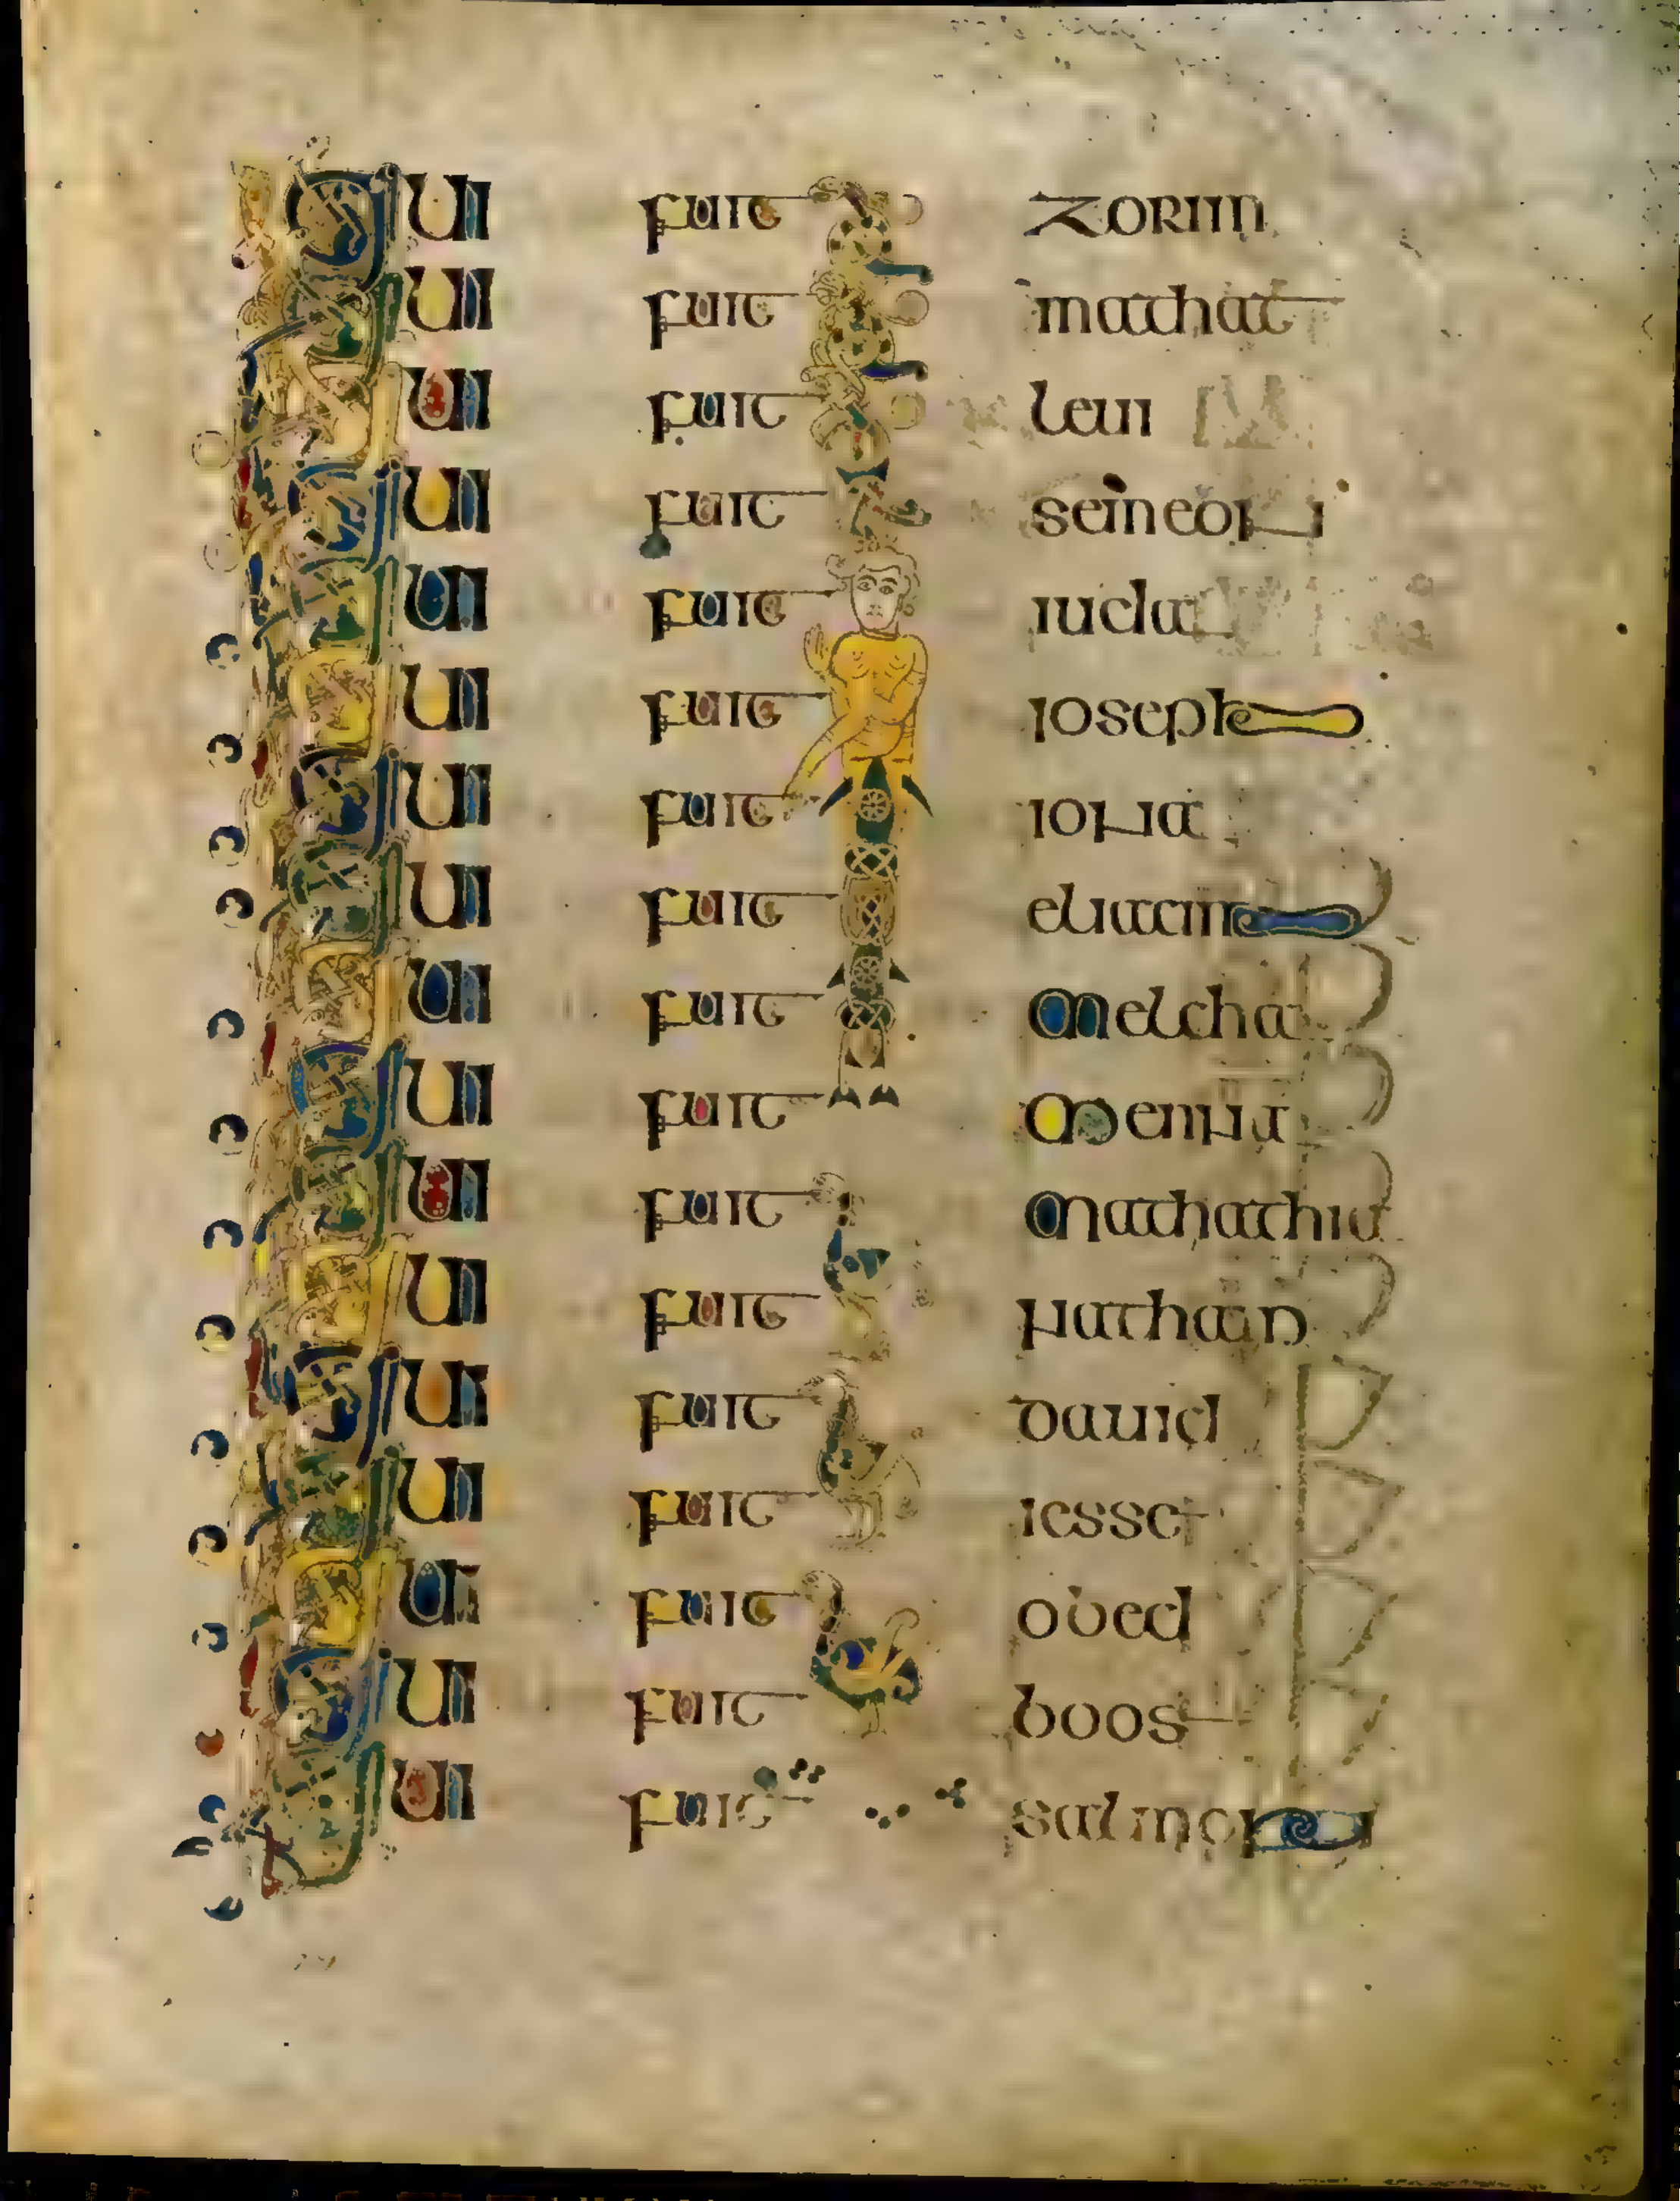 QUI fuit ZORIM
QUI fuit mathat
QUI fuit leui
QUI fuit semeon
QUI fuit iuda
QUI fuit ioseph
QUI fuit iona
QUI fuit eliacim
QUI fuit melcha
QUI fuit menna
QUI fuit mathathia
QUI fuit nathan
QUI fuit dauid
QUI fuit iesse
QUI fuit obed
QUI fuit boos
QUI fuit salmon